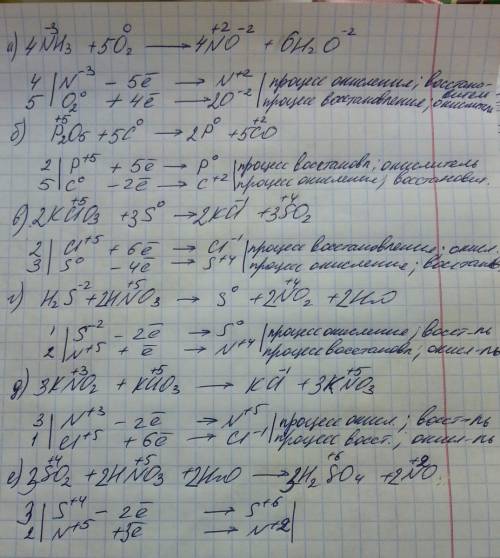 а) 4N⁻³H₃ + 5O₂⁰ → 4N⁺²O⁻² + 6H₂O⁻²
4 | N⁻³ − 5ē → N⁺² | процесс окисления; восстано-
витель
5 | O₂⁰ + 4ē → 2O⁻² | процесс восстановление;
б) P₂⁺⁵O₅ + 5C⁰ → 2P⁰ + 5C⁺²O
2 | P⁺⁵ + 5ē → P⁰ | процесс восстановл; окислитель
5 | C⁰ − 2ē → C⁺² | процесс окисления; восстановил.
в) 2KCl⁺⁵O₃ + 3S⁰ → 2KCl⁻¹ + 3S⁺⁴O₂
2 | Cl⁺⁵ + 6ē → Cl⁻¹ | процесс восстановление; окисл.
3 | S⁰ − 4ē → S⁺⁴ | процесс окисления; восстанов
г) H₂S⁻² + 2HN⁺⁵O₃ → S⁰ + 2N⁺⁴O₂ + 2H₂O
1 | S⁻² − 2ē → S⁰ | процесс окисление; восст-ль
2 | N⁺⁵ + ē → N⁺⁴ | процесс восстановл; окисл-ль
д) 3KN⁺³O₂ + KCl⁺⁵O₃ → KCl⁻¹ + 3KN⁺⁵O₃
3 | N⁺³ − 2ē → N⁺⁵ | процесс окисл.; восст-ль
1 | Cl⁺⁵ + 6ē → Cl⁻¹ | процесс восст.; окисл-ль
е) 3S⁺⁴O₂ + 2HN⁺⁵O₃ + 2H₂O → 3H₂S⁺⁶O₄ + 2N⁺²O
3 | S⁺⁴ − 2ē → S⁺⁶ |
2 | N⁺⁵ + 3ē → N⁺² |